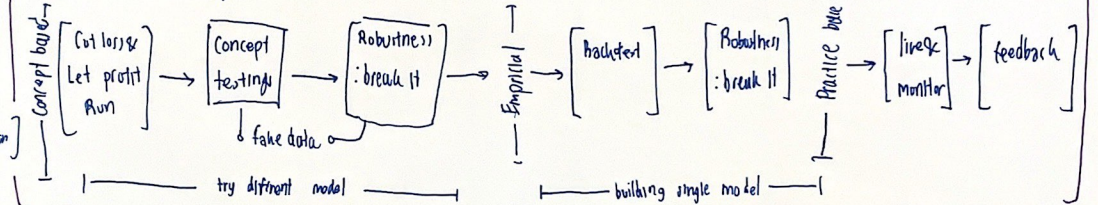 Concept based
Cut loss &
Let profit
Run
Concept
testings
Robustness
: break It
fake data
try difirent model
Emprical
backtest
Robustness
: break It
building single model
Practice base
live &
monitor
feedback